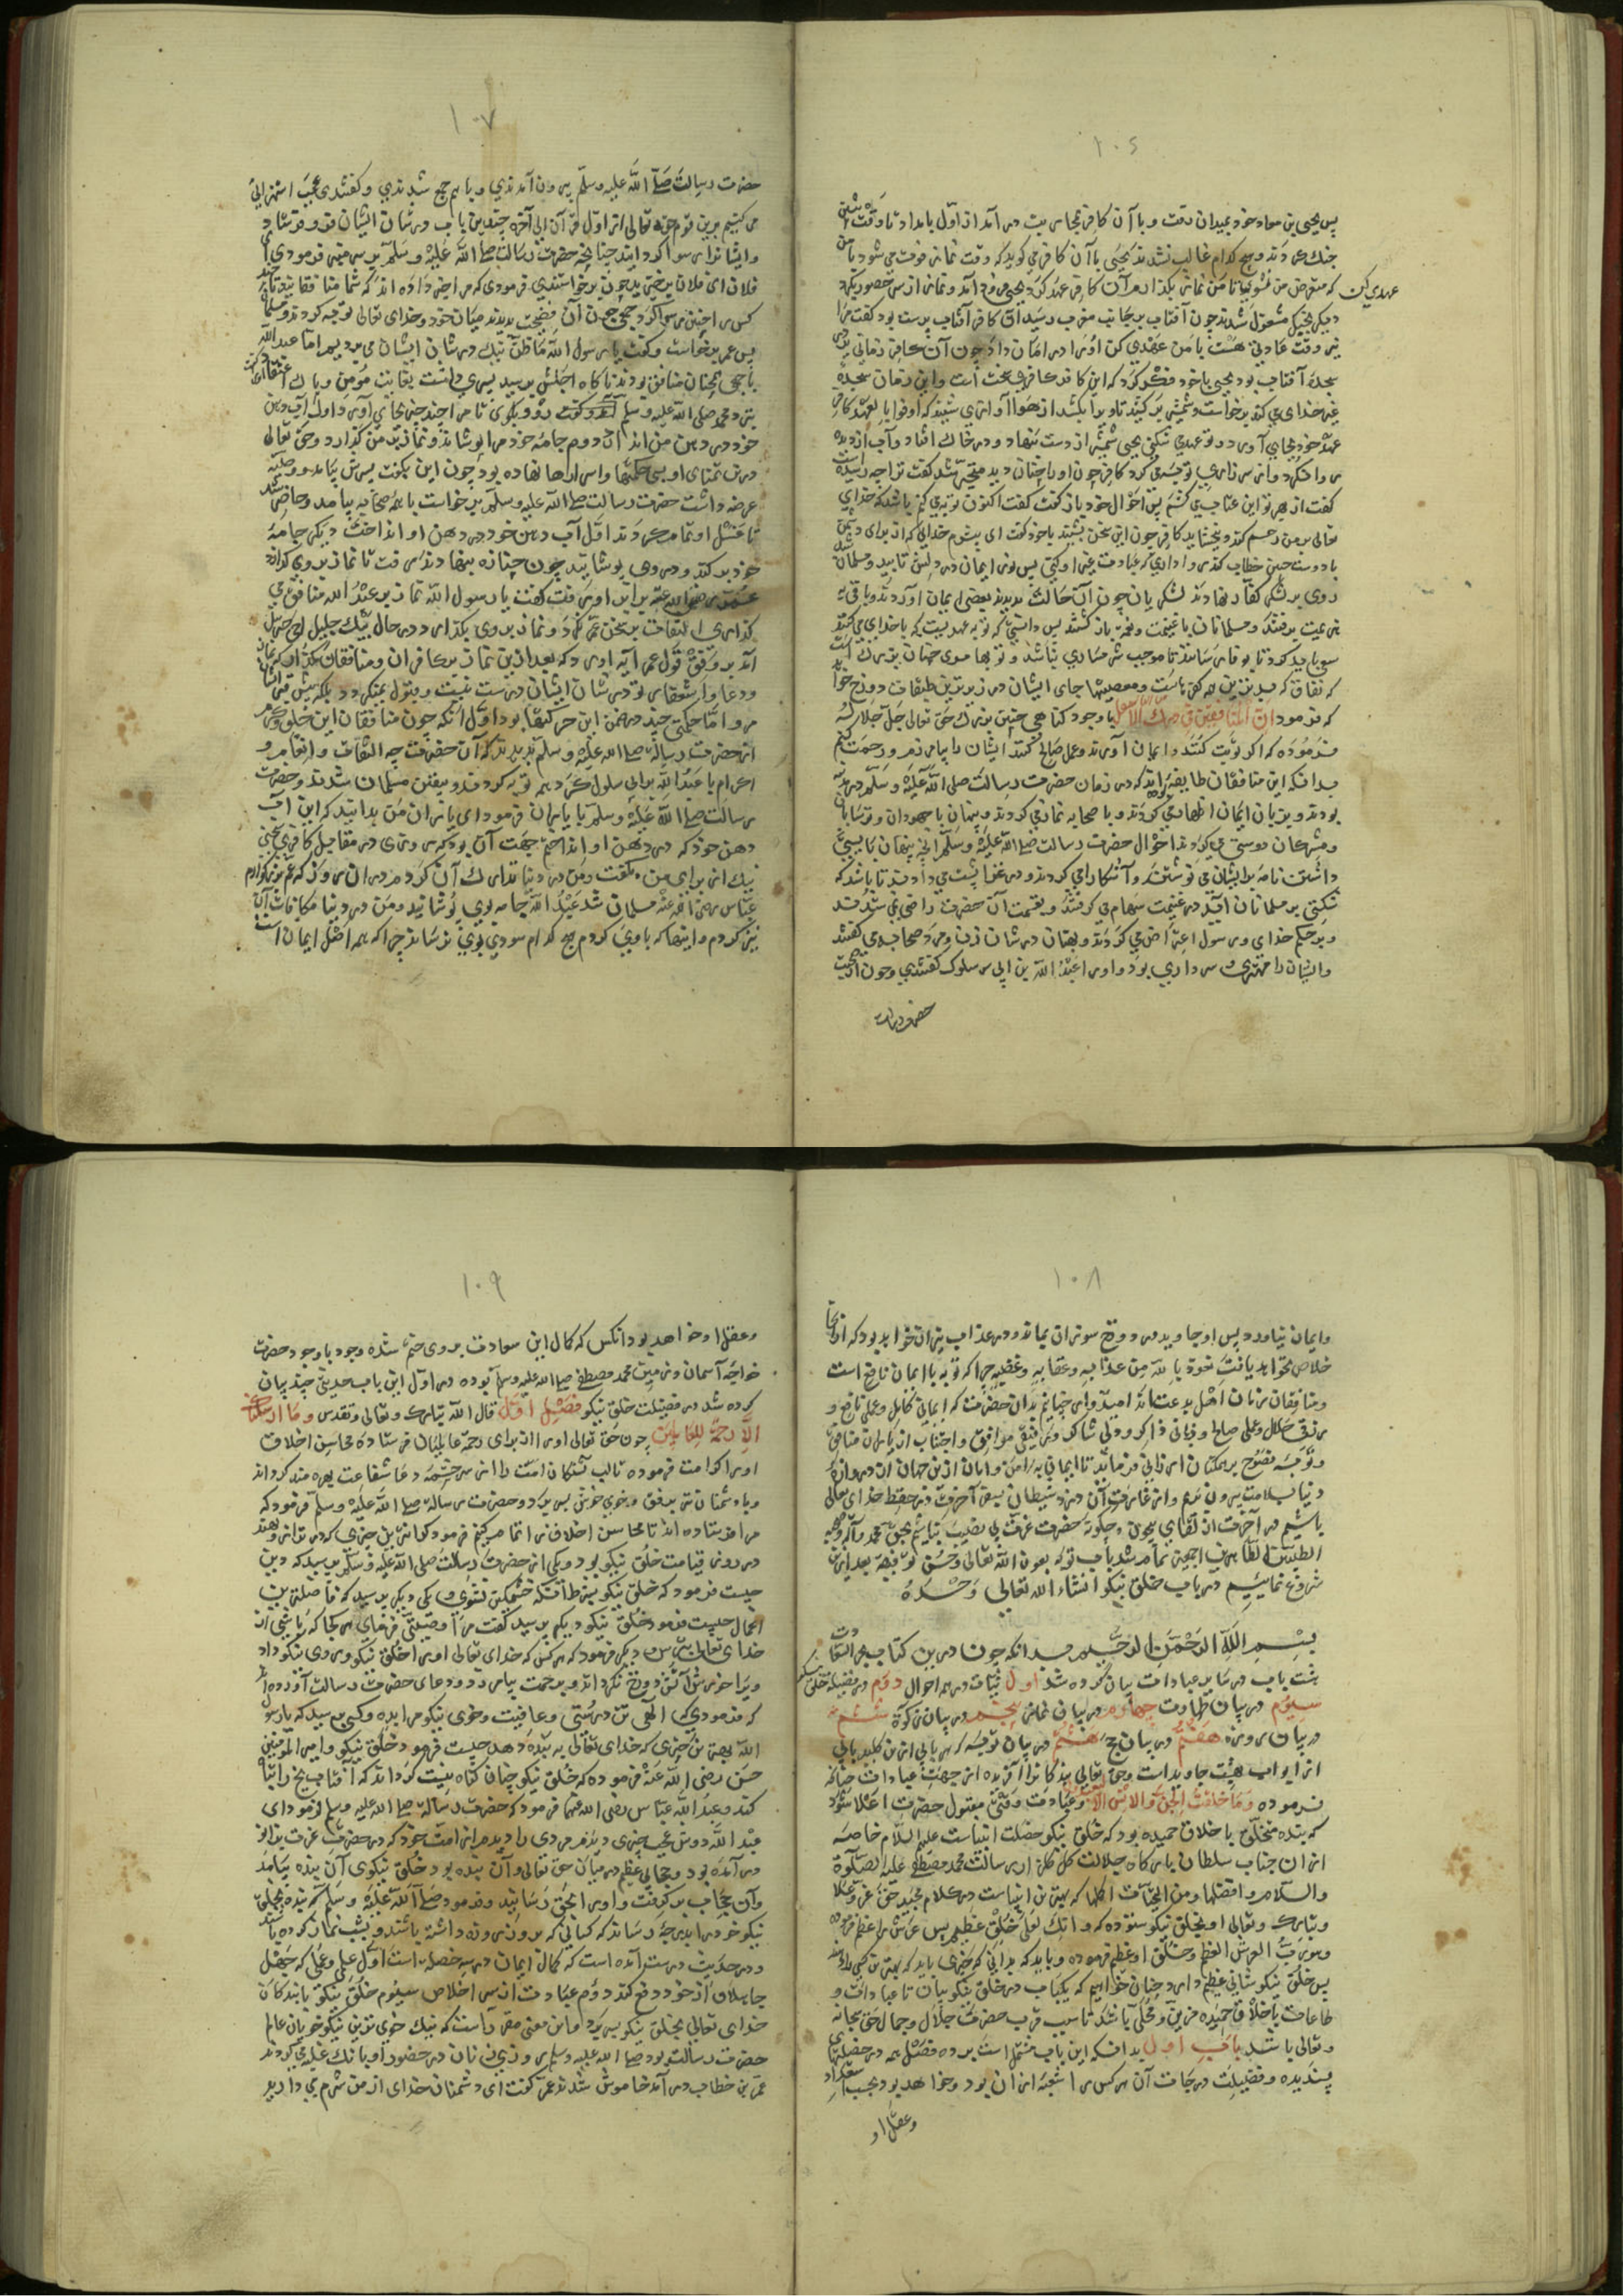 ۱۰۶
پس یحیی بن معاد خود بمیدان رفت و با آن کافر بمحاربت در آمد از اول بامداد تا وقت پیشین
جنک کردند و هیچ کدام غالب نشدند یحیی با آن کافر می کوید که وقت نماز فوت می شود با من
عهدی کن که متعرض من نشوی تا من نماز بکذارم آن کافر عهد کرد یحیی فرود آمد و نماز
دیکر بجنک مشغول شدند چون آفتاب بر جانب مغرب رسید آن کافر آفتاب پرست بود کفت مرا
نیز وقت عبادتی هست با من عهدی کن او را امان داد چون آن کافر زمانی
بسجده آفتاب بود یحیی با خود فکر کرد که این کافر سخت است و این زمان سجده
غیر خدای می کند برخاست و شمشیر بر کشید تا ویرا بکشد از هوا آوازی شنید که اوفوا بالعهد کافر
عهد خود بجای آورد و تو عهد می شکنی یحیی شمشیر از دست بنهاد و در خاک افتاد و آب از دیده
روان کرد و از سر زاری توبه می کرد کافر چون او را چنان دید متحیر شد کفت ترا چه رسیده است
کفت از بهر تو این عتاب می کشم پس احوال خود باز کفت کفت اکنون توبه می کنم باشد که خدای
تعالی بر من رحم کند و ببخشاید کافر چون این سخن بشنید با خود کفت ای بیشرم خدایی که از برای دشمن
با دوست چنین خطاب کند روا داری که عبادت غیر او کنی پس نور ایمان در دلش تابید و مسلمان شد
روی بر لشکر کفار نهاد لشکریان چون آن حالت بدیدند بعضی ایمان آوردند و باقی
هزیمت برفتند و مسلمانان با غنیمت و فتح باز کشتند پس دانستی که توبه عهدیست که با خدای می کنند
سعی باید کرد تا بوفا رسانند تا موجب شرمساری نباشد و توبها موی چنان بزرک است
که نفاق که بدترین همه کفرهاست و معصیتها جای ایشان در زیرترین طبقات دوزخ خواهد بود
که فرمود ان المنافقین فی الدرک الاسفل با وجود کناهی چنین بزرک حق تعالی جل جلاله
فرموده که اکر توبت کنند و ایمان آورند و عمل صالح کنند ایشان را بیامرزم و رحمت کنم
بدانکه این منافقان طایفه اند که در زمان حضرت رسالت صلی الله علیه و سلم در مدینه
بودند و بزبان ایمان اظهار می کردند و با صحابه نماز می کردند و پنهان با جهودان و ترسایان
و مشرکان دوستی می کردند احوال حضرت رسالت صلی الله علیه و سلم انچه پنهان بایستی
داشتن نامه بر ایشان می نوشتند و آشکارا می کردند و در غزا پشت می دادند تا باشد که
شکستی بر مسلمانان افتد در غنیمت سهام می کرفتند و بقسمت آن حضرت راضی نمی شدند
و بر حکم خدای و رسول اعتراض می کردند و بهتان در شان زن و مرد صحابه می کفتند
و ایشان را مهتری و سرداری بود و او را عبد الله بن ابی سلول کفتندی و چون از صحبت
حضرت رسالت
۱۰۷
حضرت رسالت صلی الله علیه و سلم بیرون آمدندی و با هم جمع شدندی و کفتندی عجب استهزائی
می کنیم برین قوم حق تعالی از اول قرآن الی آخره چندین باب در شان ایشان فرو فرستاد
و ایشانرا رسوا کردانید چنانچه حضرت رسالت صلی الله علیه و سلم بر سر منبر فرمودی
فلان ای فلان برخیزید چون برخاستندی فرمودی که مرا خبر داده اند که شما منافقانید تا چند
کس را چنین رسوا کرد جمعی چون آن فضیحت بدیدند میان خود و خدای تعالی توبه کردند و مسلمان
پس عمر برخاست و کفت یا رسول الله ما ظن نیک در شان ایشان می بردیم اما عبد الله
با جمعی همچنان منافق بودند تا کاه اجلش برسید پسری داشت بغایت مؤمن و پاک اعتقاد
نزد محمد صلی الله علیه و سلم آمد و کفت
خود در دهن من انداز دوم جامه خود مرا بپوشاند و نماز بر من کذارد و حق تعالی
درین تمنای او بسی حکمتها و اسرارها نهاده بود چون این بکفت پسرش بیامد و وصیت
عرضه داشت حضرت رسالت صلی الله علیه و سلم برخاست با همه صحابه بیامد و حاضر شد
تا غسل او تمام کردند اول آب دهن خود در دهن او انداخت دیکر جامه
خود بر کند و در وی پوشانید چون جنازه بنهادند رفت تا نماز بروی کذارد
عمر رضی الله عنه برابر او رفت کفت یا رسول الله نماز بر عبد الله منافق می
کذاری التفات بسخن عمر نکرد و نماز بر وی بکذارد در حال پیک جلیل جبرئیل
آمد بر وفق قول عمر آیه آورد که بعد ازین نماز بر کافران و منافقان مکذار که نماز
و دعا و استغفار تو در شان ایشان درست نیست و قبول نمیکردد بلکه پیش قبر ایشان
مرو اما حکمتی چند در ضمن این حرکتها بود اول آنکه چون منافقان این خلق و کرم
از حضرت رسالت صلی الله علیه و سلم بدیدند که آن حضرت چه التفات و انعام و
اکرام با عبد الله بن ابی سلول کرد همه توبه کردند و بیقین مسلمان شدند و حضرت
رسالت صلی الله علیه و سلم با یاران فرمود ای یاران من بدانید که این آب
دهن خود که در دهن او انداختم جهت آن بود که روزی در مقابل کافری سخنی
نیک از برای من بکفت من در دنیا تدارک آن کردم در آن روز که عم بزرکوارم
عباس رضی الله عنه مسلمان شد عبد الله جامه بوی پوشانید و من در دنیا مکافات آن
نیز کردم و اینها که با وی کردم هیچ کدام سودی بوی نرساند چرا که همه اصل ایمان است
۱۰۸
و ایمان نیاورد پس او جاوید در دوزخ سوزان بماند و در عذاب نیران خواهد بود که از آنجا
خلاص نخواهد یافت نعوذ بالله من عذابه و عقابه و غضبه چرا که توبه با ایمان نافع است
و منافقان زمان اهل بدعت اند امیدوارم چنانم بدان حضرت که ایمانی کامل و عملی نافع و
رزقی حلال و عملی صالح و زبانی ذاکر و دلی شاکر و رفیقی موافق و اجتناب از یاران منافق
و توبه نصوح بر همکنان ارزانی فرماید تا ایمانی به امن و امان ازین جهان از دروازه
دنیا بسلامت بیرون بریم و از غارت آن دزد شیطان بسفر آخرت در حفظ خدای تعالی
باشیم در آخرت از لقای بیچون و چکونه حضرت عزت بی نصیب نباشیم بحق محمد و آله
الطیبین الطاهرین اجمعین تمام شد باب توبه بعون الله تعالی و حسن توفیقه بعد ازین
شروع نمائیم در باب خلق نیکو انشاء الله تعالی وحده
بسم الله الرحمن الرحیم بدانکه چون درین کتاب
هشت باب در سایر عبادات بیان کرده شد اول نیات در همه احوال دوم در فضیلت
سیوم در بیان طهارت چهارم در بیان نماز پنجم در بیان زکوة ششم
در بیان روزه هفتم در بیان حج هشتم در بیان توبه که هر بابی ازین کلید بابی
از ابواب بهشت جاویدانست و حق تعالی بندکانرا آفریده از جهت عبادات چنانکه
فرموده و ما خلقت الجن و الانس الا لیعبدون و عبادت وقتی مقبول حضرت اعلا شود
که بنده متخلق با خلاق حمیده بود که خلق نیکو خصلت انبیاست علیهم السلام خاصه
از آن جناب سلطان بارکاه جلالت کل کلزار رسالت محمد مصطفی علیه الصلوة
والسلام و افضلها و من التحیات اکملها که بهترین انبیاست در کلام مجید حق عز و علا
و تبارک و تعالی او بخلق نیکو ستوده که و انک لعلی خلق عظیم پس عرش را عظیم فرموده
و هو رب العرش العظیم و خلق او عظیم فرموده و باید که بدانی که چیزی باید که بهترین کسی
پس خلق نیکو شانی عظیم دارد چنان خواهیم که یکباب در خلق نیکو بیان تا عبادات و
طاعات با خلاق حمیده مزین و محلی باشد تا سبب قرب حضرت جلال و جمال حق سبحانه
و تعالی باشد باب اول بدانکه این باب مشتمل است برده فصل همه در خصلتهای
پسندیده و فضیلت درجات آن هر کس را شعبه از آن بود و خواهد بود بحسب استعداد
و عقل او
۱۰۹
و عقل او خواهد بود انکس که کمال این سعادت بر وی ختم شده وجود با جود حضرت
خواجه آسمان و زمین محمد مصطفی صلی الله علیه و سلم بوده در اول این باب حدیثی چند بیان
کرده شد در فضیلت خلق نیکو فصل اول قال الله تبارک و تعالی و تقدس و ما ارسلناک
الا رحمة للعالمین چون حق تعالی او را از برای رحمة عالمیان فرستاده محاسن اخلاق
او را کرامت فرموده تا لب تشنکان امت را از سرچشمه دعا شفاعت بهره مند کرداند
و با دشمنان نیز برفق و خوی خوش بسر برد و حضرت رسالت صلی الله علیه و سلم فرمود که
مرا فرستاده اند تا محاسن اخلاق را تمام کنم فرمود کرانترین چیزی که در ترازو نهند
در روز قیامت خلق نیکو بود و یکی از حضرت رسالت صلی الله علیه و سلم پرسید که دین
چیست فرمود که خلق نیکو خشمکین نشوی و یکی دیکر پرسید که فاضلترین
اعمال چیست فرمود خلق نیکو دیکر پرسید کفت مرا وصیتی فرمای هر کجا که باشی از
خدای تعالی بترس و دیکر فرمود که هر کس که خدای تعالی او را خلق نیکو و روی نیکو داد
ویرا خورش آتش دوزخ نکرداند و برحمت بیامرزد و دعای حضرت رسالت آن
که فرمودی الهی تن درستی و عافیت و خوی نیکو مرا بده و کسی پرسید که یا رسول
الله بهترین چیزی که خدای تعالی به بنده دهد چیست فرمود خلق نیکو و امیر المؤمنین
حسن رضی الله عنه فرموده که خلق نیکو چنان کناه نیست کرداند که آفتاب یخ را
کند و عبد الله عباس رضی الله عنهما فرمود که حضرت رسالت صلی الله علیه و سلم فرمود ای
عبد الله دوش عجب چیزی دیدم مردی را دیدم از امت خود که در حضرت عزت بزانو
در آمده بود و حجابی عظیم در میان حق تعالی و آن بنده بود خلق نیکوی آن بنده بیامد
و آن حجاب بر کرفت و او را بحق رسانید و فرمود صلی الله علیه و سلم که بنده بخلق
نیکو خود را بدرجه رساند که کسانی که بروز روزه داشته باشند و بشب نماز کرده باشند
و در حدیث درست آمده است که کمال ایمان در سه خصلت است اول علمی و عملی که جهل
جاهلان از خود دفع کند دوم عبادت از سر اخلاص سیوم خلق نیکو تا بندکان
خدای تعالی بخلق نیکو بسر برد و این معنی مقرر است که نیک خوی ترین نیکو خویان عالم
حضرت رسالت بود صلی الله علیه و سلم روزی زنان در حضور او بانک غلبه می کردند
عمر بن خطاب در آمد خاموش شدند عمر کفت ای دشمنان خدای از من شرم می دارید